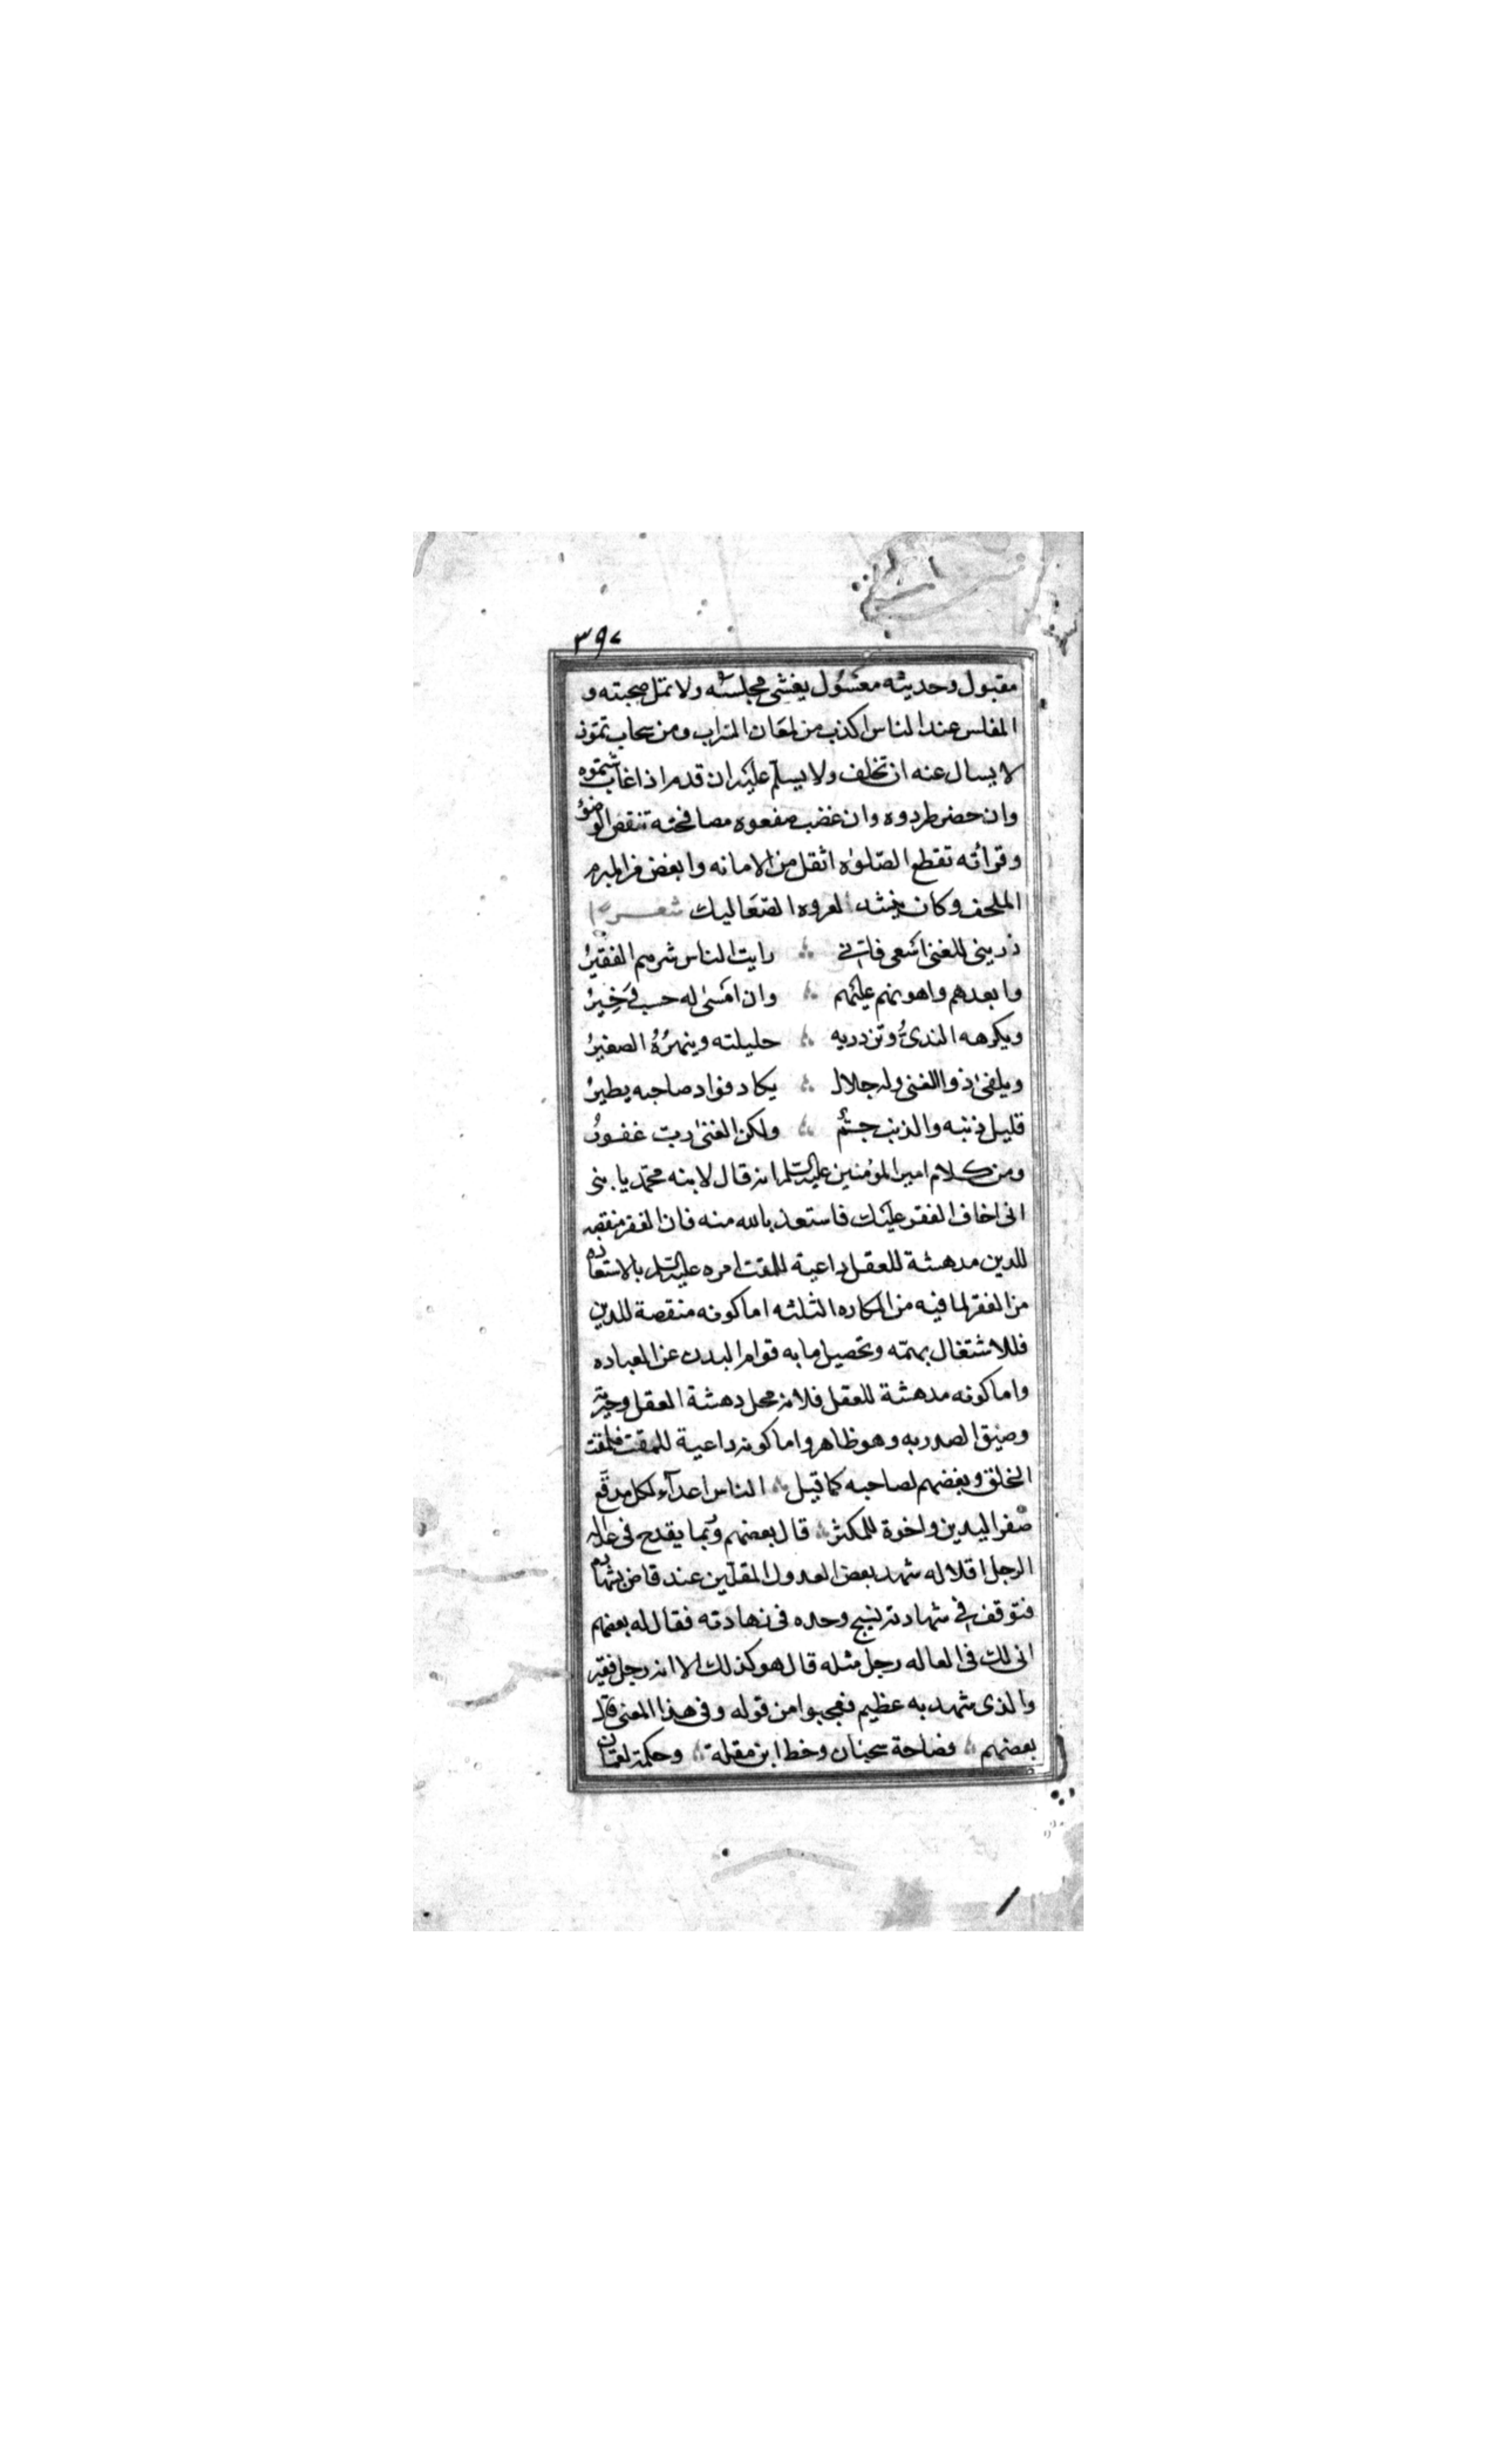 ٣٩٧
مقبول وحديثه معسول يغشى مجلسه ولا تمل صحبته و
المفلس عند الناس اكذب من لمعان السراب ومن سحاب تموز
لا يسال عنه ان تخلف ولا يسلم عليه ان قدم اذا غاب شتموه
وان حضر طردوه وان غضب صفعوه مصافحته تنقض الوضوء
وقرائته تقطع الصلوة اثقل من الامانه وابغض من المبرم
الملحف وكان ينشد لعروه الصعاليك شعر
ذريني للغنى اسعى فاني رايت الناس شرهم الفقير
وابعدهم واهونهم عليهم وان امسى له حسب وخير
ويكرهه الندي وتزدريه حليلته وينهره الصغير
ويلفى ذوا الغنى وله جلال يكاد فواد صاحبه يطير
قليل ذنبه والذنب جم ولكن الغنى رب غفور
ومن كلام امير المؤمنين عليه السلم انه قال لابنه محمد يا بنى
انى اخاف الفقر عليك فاستعذ بالله منه فان الفقر منقصه
للدين مدهشة للعقل داعية للمقت امره عليه السلم بالاستعاذه
من الفقر لما فيه من المكاره الثلثه اما كونه منقصة للدين
فللاشتغال بهمه وتحصيل ما به قوام البدن عن العباده
واما كونه مدهشة للعقل فلانه محل دهشة العقل وحيرته
وضيق الصدر به وهو ظاهر واما كونه داعية للمقت فلمقت
الخلق وبغضهم لصاحبه كما قيل الناس اعداء لكل مدقع
صفر اليدين واخوة للمكثر قال بعضهم ربما يقدح في عداله
الرجل اقلاله شهد بعض العدول المقلين عند قاض بشهاده
فتوقف في شهادته نسيج وحده فى زهادته فقال له بعضهم
انى لك فى العاله رجل مثله قال هو كذلك الا انه رجل فقير
والذى شهد به عظيم فعجبوا من قوله وفى هذا المعنى قال
بعضهم فصاحة سحبان وخط ابن مقلة وحكمة لقمان